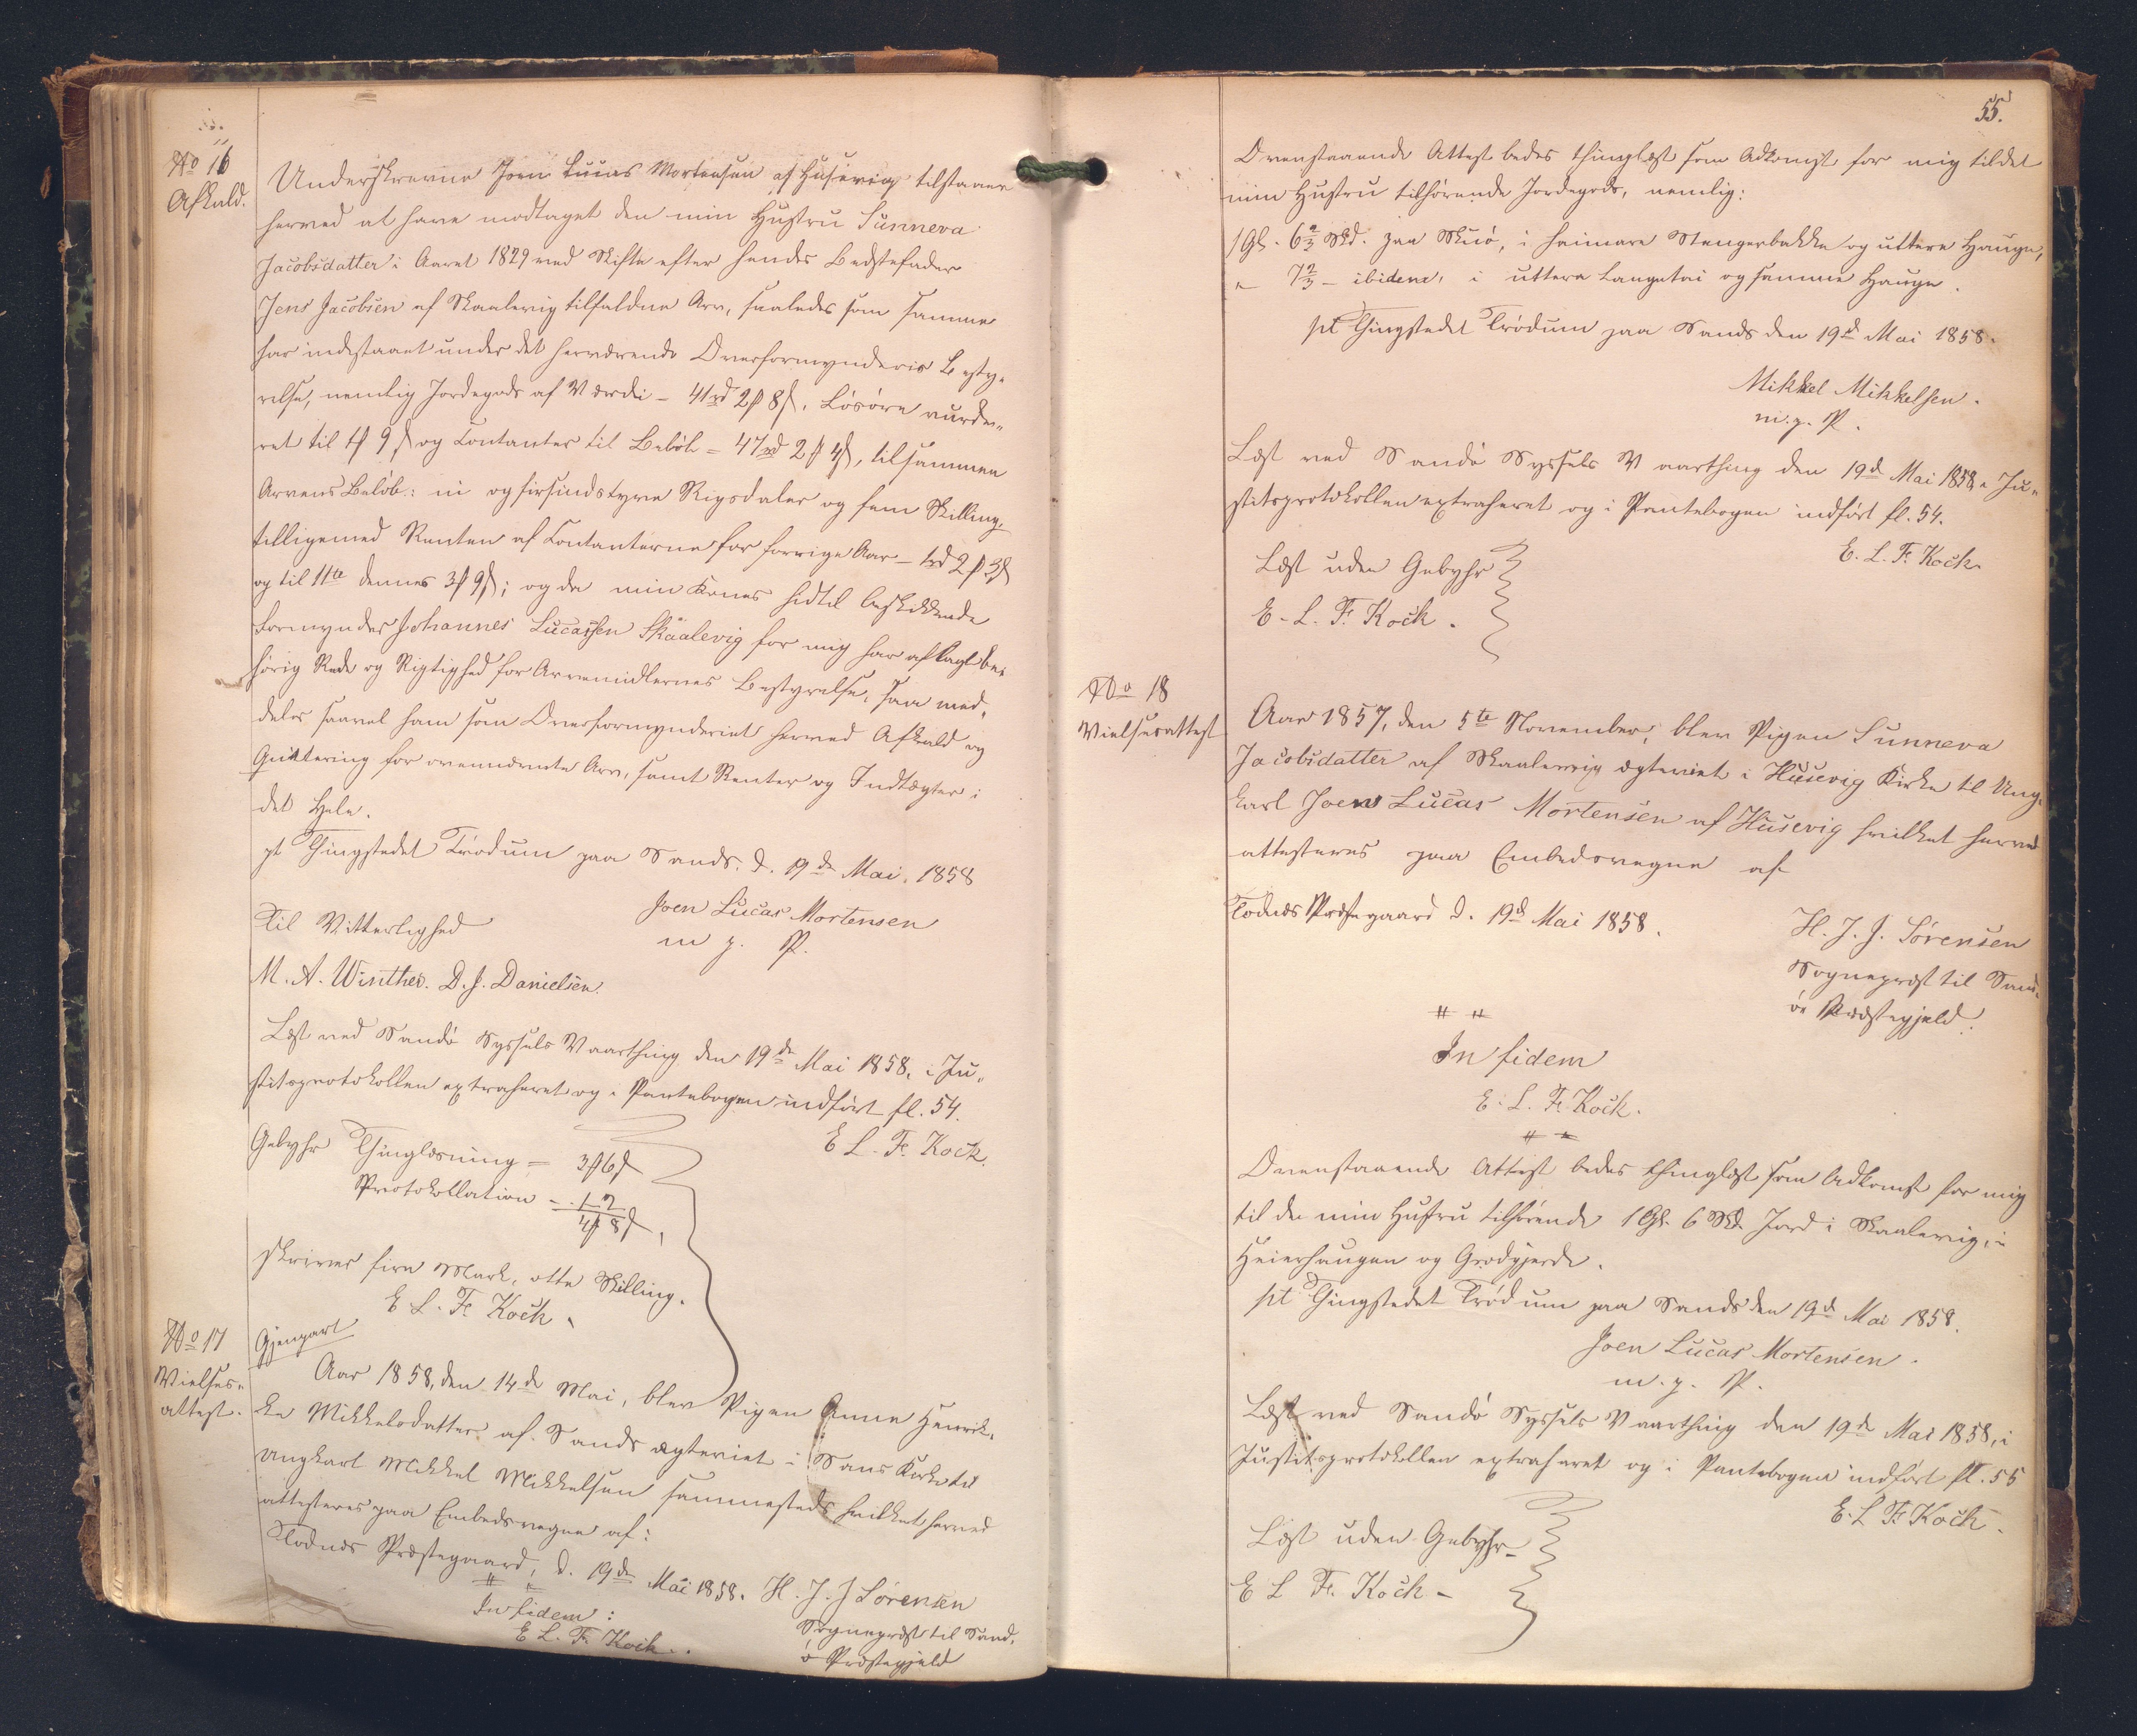 No 16
Afkald.
Underskrevne Joen Lucas Mortensen af Husevig tilstaaer
herved at have modtaget den min Hustru Sunneva
Jacobsdatter i Aaret 1829 ved Skifte efter hendes Bedstefader
Jens Jacobsen af Skaalevig tilfaldne Arv, saaledes som samme
har indestaaet under det herværende Overformynderies Besty-
relse, nemlig Jordegods af Værdi - 41rd 2ß 8ß, Løsøre vurde-
ret til 1ß 9ß og Contanter til Beløb = 47rd 2ß 4ß, tilsammen
Arvens Beløb: ni og firsindstyve Rigsdaler og fem Skilling
tilligemed Renten af Contanterne for forrige Aar - 1rd 2ß 3ß
og til 11te dennes 3ß 9ß; og da min Kones hidtil beskikkede
Formynder Johannes Lucassen Skaalevig for mig har aflagt be-
hørig Rede og Rigtighed for Arvemidlernes Bestyrelse, saa med-
deles saavel ham som Overformynderiet herved Afkald og
Qvittering for ovennævnte Arv, samt Renter og Indtægter i
det Hele.
pt Thingstedet Trödum paa Sands. d. 19de Mai. 1858
Joen Lucas Mortensen
m. p. P.
Til Vitterlighed
M. A. Winther. D. J. Danielsen.
Læst ved Sandö Syssels Vaarthing den 19de Mai 1858, i Ju-
stitsprotokollen extraheret og i Pantebogen indført fl. 54.
E L. Fr. Koch.
Gebyhr Thinglæsning = 3ß 6ß
Protokollation - 1 - 2
4ß 8ß,
skriver fire Mark, otte Skilling.
E L. Fr Koch.
No 17
Vielses-
attest.
Gjenpart
Aar 1858, den 14de Mai, blev Pigen Anne Henrik-
ke Mikkelsdatter af Sands ægteviet i Sans Kirke til
Ungkarl Mikkel Mikkelsen sammesteds hvilket herved
attesteres paa Embedsvegne af:
Todnes Præstegaard, d. 19de Mai 1858. H. J. J Sörensen
Sognepræst til Sand-
ö Præstegjeld
In fidem:
E L. Fr. Koch.
55.
Ovenstaaende Attest bedes thinglæst som Adkomst for mig til det
min Hustru tilhørende Jordegods, nemlig:
1 Gl. 6 2/3 Skd. paa Skuö, i heimare Stengerbakke og uttere Hauge,
" 7 2/3 - ibidem, i uttera Langetai og samme Hauge.
pt Thingstedet Trödum paa Sands den 19de Mai 1858.
Mikkel Mikkelsen.
m. p. P.
Læst ved Sandö Syssels Vaarthing den 19de Mai 1858, i Ju-
stitsprotokollen extraheret og i Pantebogen indført fl. 54.
E. L. Fr. Koch.
Læst uden Gebyhr
E. L. Fr. Koch.
No 18
Vielsesattest
Aar 1857, den 5te November, blev Pigen Sunneva
Jacobsdatter af Skaalevig ægteviet i Husevig Kirke til Ung-
karl Joen Lucas Mortensen af Husevig hvilket herved
attesteres paa Embedsvegne af
Todnes Præstegaard d. 19de Mai 1858.
H. J. J. Sörensen
Sognepræst til Sand-
ö Præstegjeld.
In fidem
E. L. Fr. Koch.
Ovenstaaende Attest bedes thinglæst som Adkomst for mig
til de min Hustru tilhørende 1 Gl. 6 Skd. Jord i Skaalevig, i
Heierhaugen og Grodgjerde.
pt Thingstedet Tródum paa Sands den 19de Mai 1858.
Joen Lucas Mortensen.
m. p. P.
Læst ved Sandö Syssels Vaarthing den 19de Mai 1858, i
Justitsprotokollen extraheret og i Pantebogen indført fl. 55
E. L Fr Koch.
Læst uden Gebyhr
E L Fr. Koch -